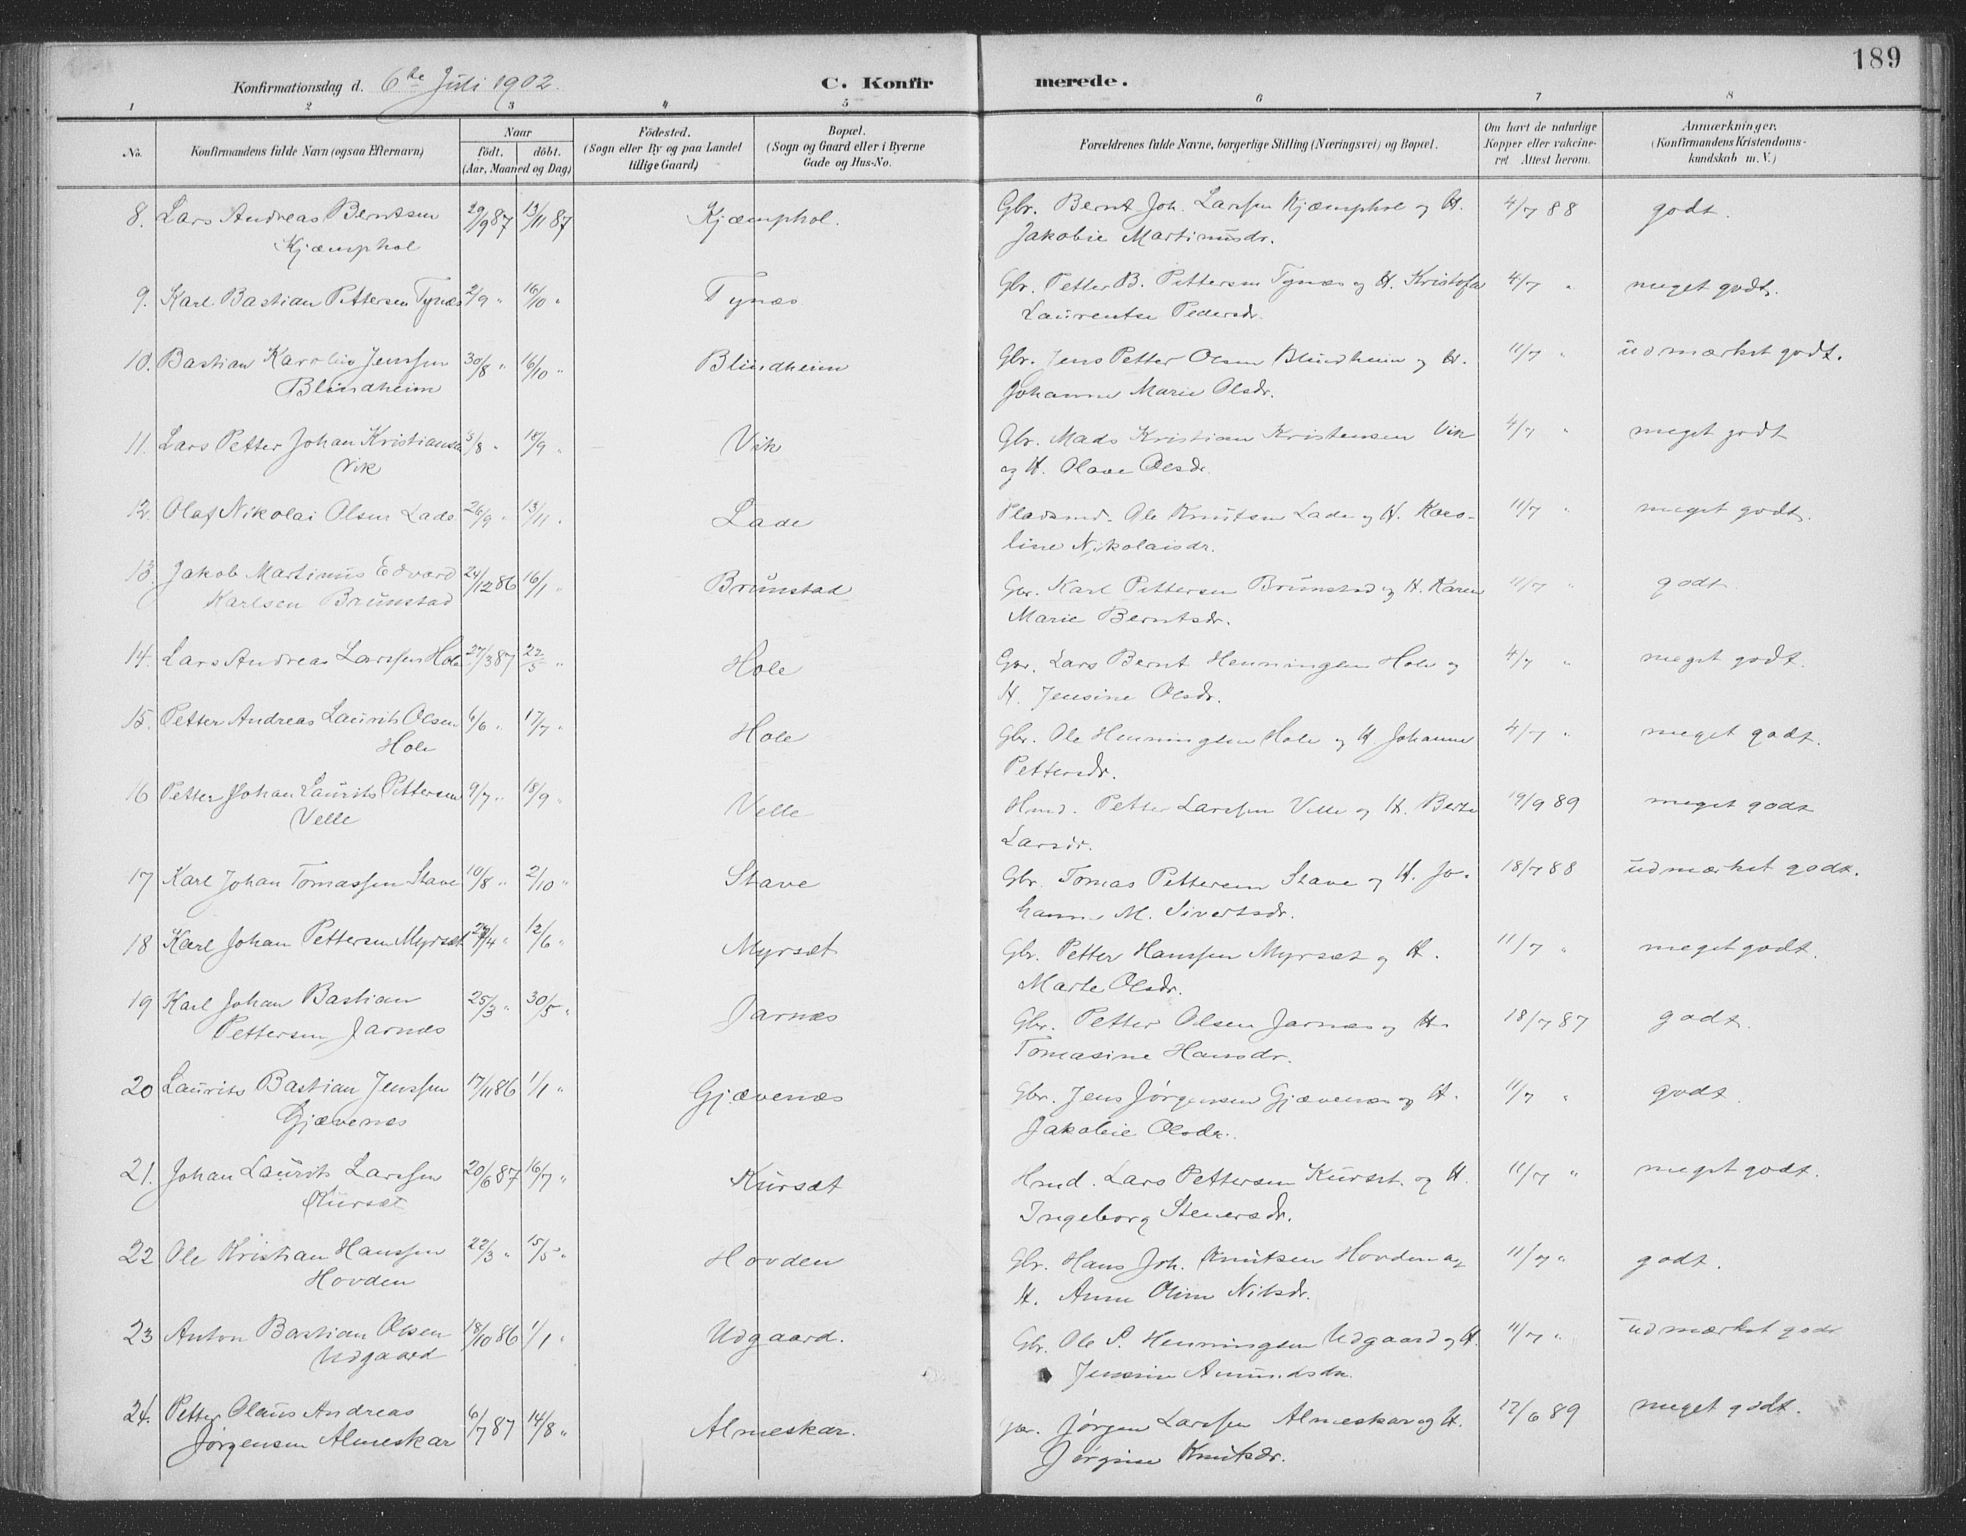 189
Konfirmationsdag d. 6te Juli 1902.
C. Konfir merede.
1 2 3 4 5 6 7 8
No.
Konfirmandens fulde Navn (ogsaa Efternavn)
Naar
födt. döbt.
(Aar, Maaned og Dag)
Födested.
(Sogn eller By og paa Landet
tillige Gaard)
Bopæl.
(Sogn og Gaard eller i Byerne
Gade og Hus-No.
Forældrenes fulde Navne, borgerlige Stilling (Næringsvei) og Bopæl.
Om havt de naturlige
Kopper eller vakcine-
ret Attest herom.
Anmærkninger.
(Konfirmandens Kristendoms-
kundskab m. V.)
8. Lars Andreas Berntsen 29/9 87 13/11 87 Kjæmphol. Gbr. Bernt Joh. Larssen Kjæmphol og H. 4/7 88 godt.
Kjæmphol Jakobie Martinusdr.
9. Karl Bastian Pettersen Tynæs 2/9 " 16/10 " Tynæs Gbr. Petter B. Pettersen Tynæs og H. Kristofa 4/7 " meget godt.
Laurentse Pedersdr.
10. Bastian Karolius Jenssen 30/8 " 16/10 " Blindheim Gbr. Jens Petter Olsen Blindheim og H. 11/7 " udmærket godt.
Blindheim Johanne Marie Olsdr.
11. Lars Petter Johan Kristiansen 3/8 " 18/9 " Vik Gbr. Mads Kristian Kristensen Vik 4/7 " meget godt
Vik og H. Olave Olsdr.
12. Olaf Nikolai Olsen Lade 26/9 " 13/11 " Lade Pladsmd. Ole Knutsen Lade og H. Karo-11/7 " meget godt.
line Nikolaisdr.
13. Jakob Martinus Edvard 24/12 86 16/1 " Brunstad Gbr. Karl Pettersen Brunstad og H. Karen 11/7 " godt
Karlsen Brunstad Marie Berntsdr.
14. Lars Andreas Larssen Hole 27/3 87 22/5 " Hole Gbr. Lars Bernt Henningsen Hole og 4/7 " meget godt.
H. Jensine Olsdr.
15. Petter Andreas Laurits Olsen 6/6 " 17/7 " Hole Gbr. Ole Henningsen Hole og H Johanne 4/7 " meget godt.
Hole Pettersdr.
16 Petter Johan Laurits Pettersen 9/7 " 18/9 " Velle Hmd. Petter Larssen Velle og H. Berte 19/9 89 meget godt
Velle Larsdr.
17 Karl Johan Tomassen Stave 10/8 " 2/10 " Stave Gbr. Tomas Pettersen Stave og H. Jo- 18/7 88 udmærket godt.
hanne M. Sivertsdr.
18 Karl Johan Pettersen Myrsæt /4 " 12/6 " Myrsæt Gbr. Petter Hanssen Myrsæt og H. 11/7 " meget godt.
Marte Olsdr.
19 Karl Johan Bastian 25/3 " 30/5 " Jarnæs Gbr. Petter Olsen Jarnæs og H. 18/7 87 godt.
Pettersen Jarnæs Tomasine Hansdr.
20 Laurits Bastian Jenssen 17/11 86 1/1 " Gjævenæs Gbr. Jens Jørgensen Gjævenæs og H. 11/7 " godt.
Gjævenæs Jakobie Olsdr.
21. Johan Laurits Larssen 20/6 87 16/7 " Kursæt Hmd. Lars Pettersen Kursæt og H. 11/7 " meget godt.
Kursæt Ingeborg Stenersdr.
22 Ole Kristian Hanssen 22/3 " 15/5 " Hovden Gbr. Hans Joh. Knutsen Hovden og 11/7 " godt.
Hovden H. Anne Oline Nilsdr.
23 Anton Bastian Olsen 18/10 86 1/1 " Udgaard. Gbr. Ole P. Henningsen Udgaard og H. 11/7 " udmærket godt
Udgaard Jensine Amundsdr.
24. Petter Olaus Andreas 6/7 87 14/8 " Almeskar. Gbr. Jørgen Larssen Almeskar og H. 12/6 89 meget godt.
Jørgensen Almeskar Jørgine Knutsdr.